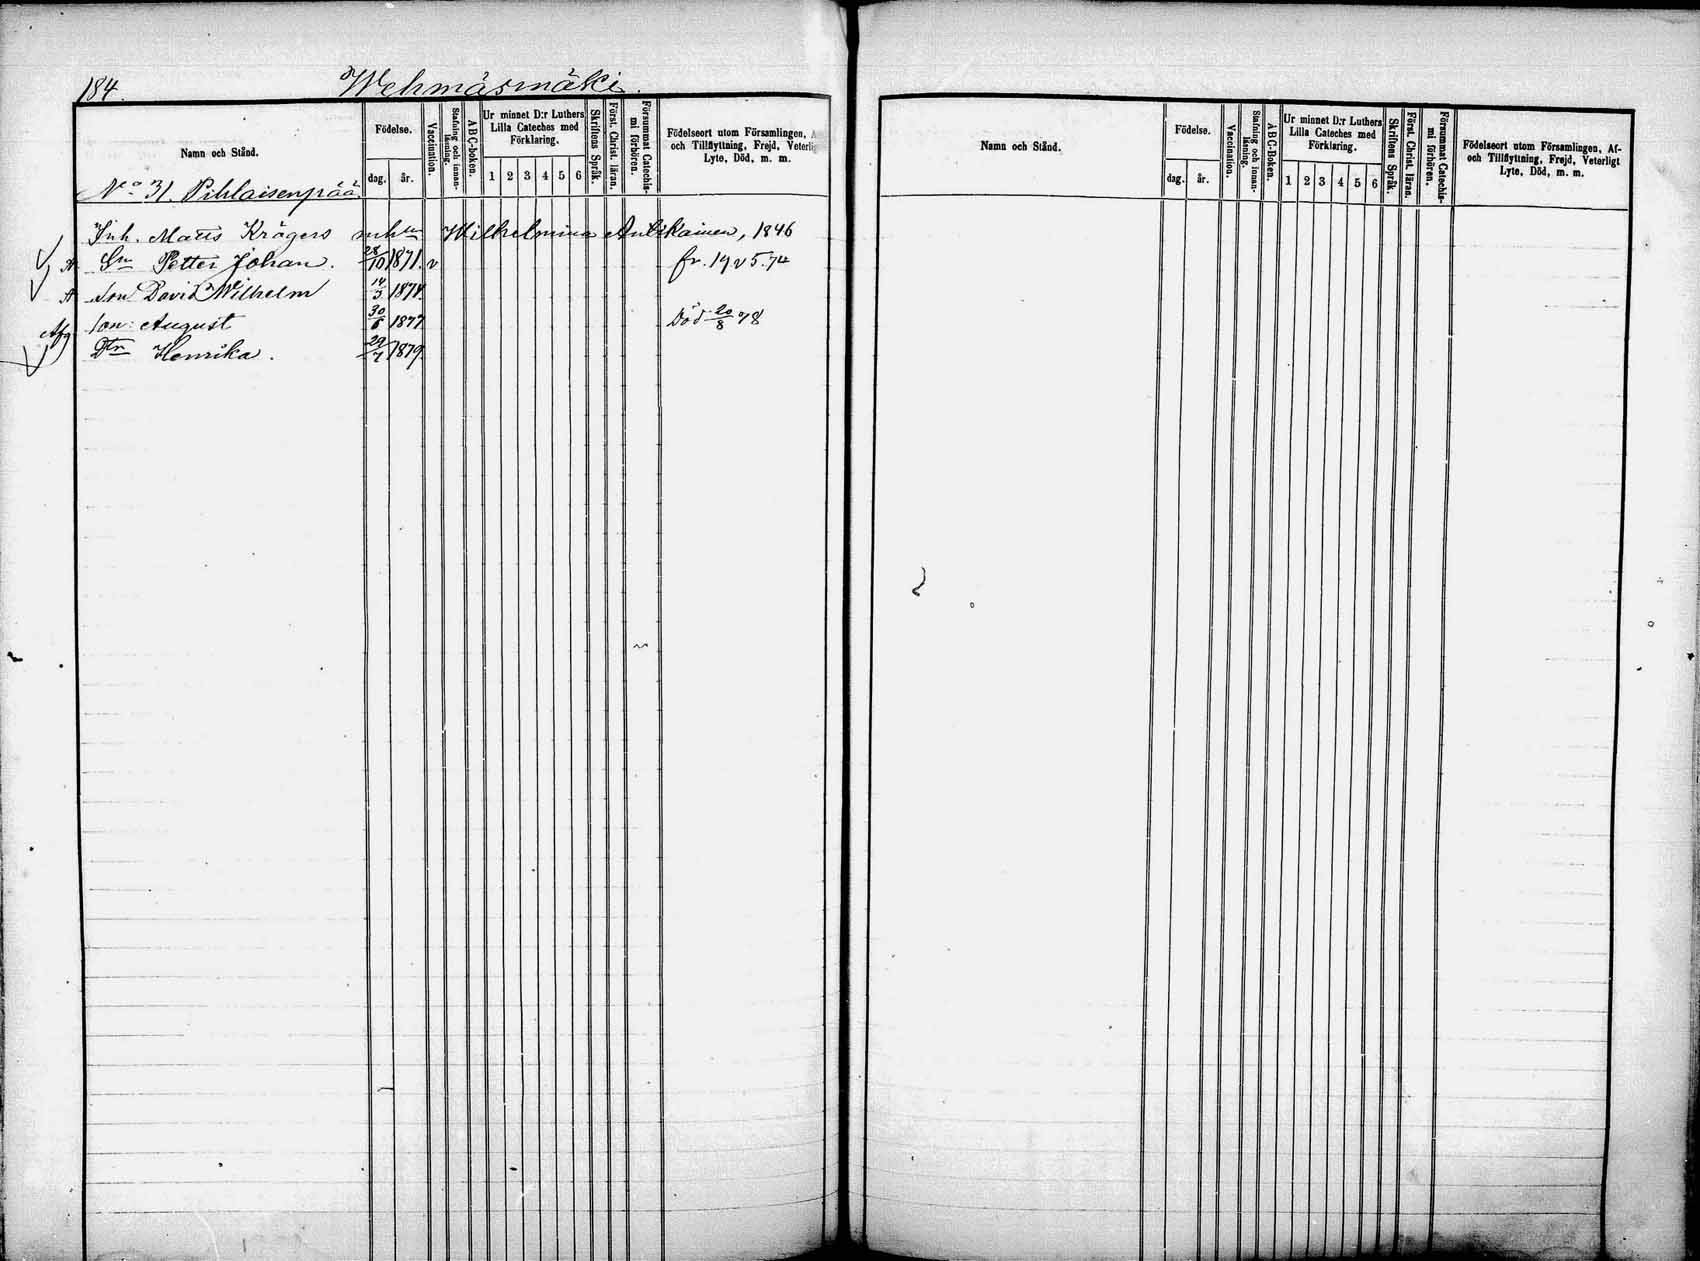 184. Wehmäsmäki.
Namn och Stånd. Födelse. dag. år. Vaccination. Stafning och innanläsning. ABC-boken. Ur minnet D:r Luthers Lilla Cateches med Förklaring. 1 2 3 4 5 6 Skriftens Språk. Först. Christ. läran. Försummat Catechismi förhören. Födelseort utom Församlingen, och Tillflyttning, Frejd, Veterligt Lyte, Död, m. m.
No 31. Pihlaisenpää
Inh. Matts Krögers mhu Wilhelmina Antikainen, 1846
Sn Petter Johan. 28/10 1871. v fr. 19 v 5.74
Son David Wilhelm 14/3 1874.
Son: August 30/6 1877 Död 20/8 78
Dtr Henrika. 29/7 1879.
Namn och Stånd. Födelse. dag. år. Vaccination. Stafning och innanläsning. ABC-boken. Ur minnet D:r Luthers Lilla Cateches med Förklaring. 1 2 3 4 5 6 Skriftens Språk. Först. Christ. läran. Försummat Catechismi förhören. Födelseort utom Församlingen, Af- och Tillflyttning, Frejd, Veterligt Lyte, Död, m. m.